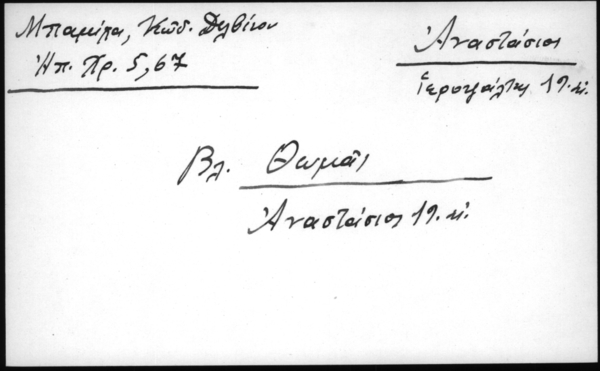 Μπαμίχα, Κώδ. Δελβίνου
Ἠπ. Χρ. 5, 67
Ἀναστάσιος
Ἱεροψάλτης 19. αἰ.
Βλ. Θωμᾶς
Ἀναστάσιος 19. αἰ.